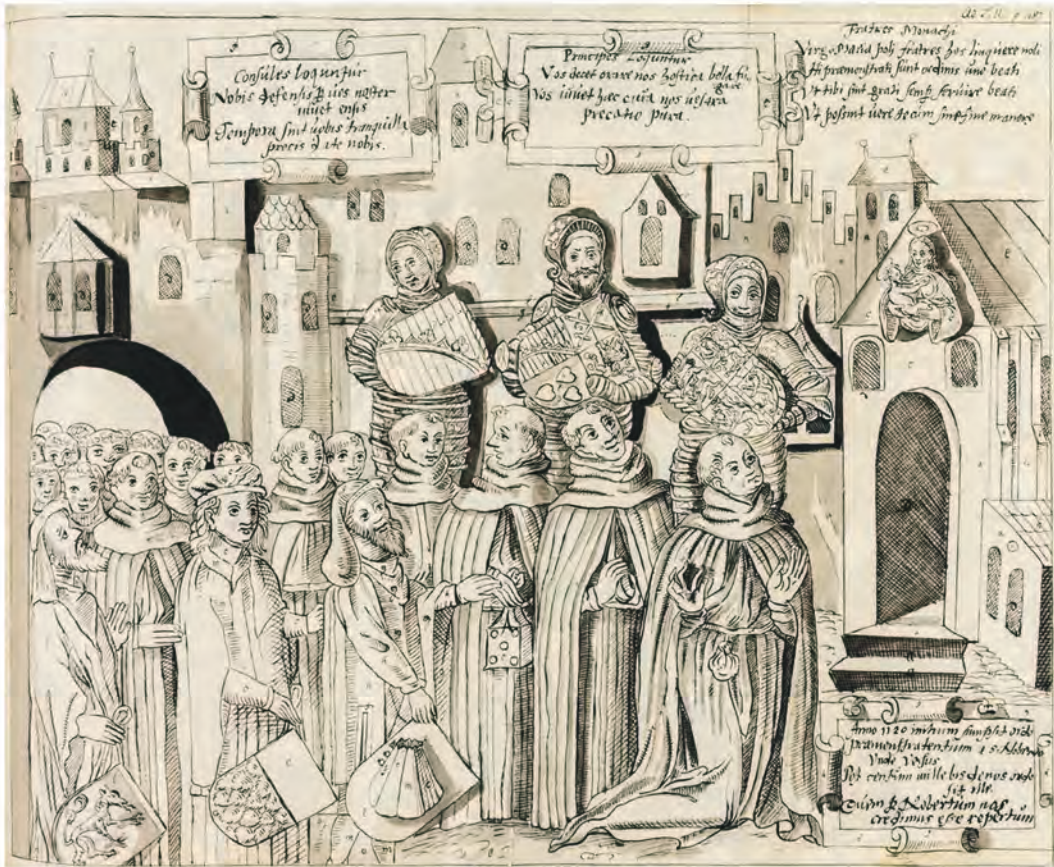 Consules loquuntur
Nobis defensis p ues noster
iuuet ensis
Tempora sint uobis tranquilla
precis q ite nobis.
Principes Loquuntur
Vos decet orare nos hostica bella fu
gare
Vos iuuet hæc cura nos uestra
precatio pura.
Fratres Monachi
Virgo Maria poli fratres hos linquere noli
Hi præmonstrati sunt ordinis uno beati
Vt tibi sint grati semp seruire beati
Vt possint uere tecum sine fine manere
Anno 1120 initium sumpsit ordo
Præmonstratentium
Vnde Versus
Post centum mille bis denos ordo
sit ille
Quem p Robertum nos
credimus esse repertum